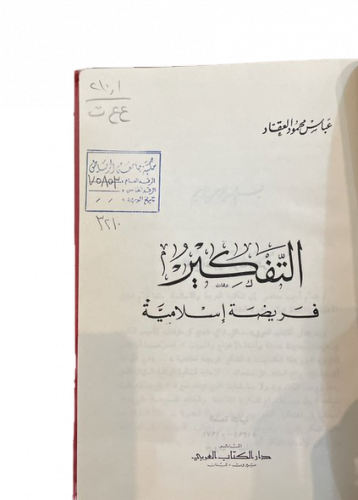 ٢١٠٫١
ع ع ت
عباس محمود العقاد
مكتبة جامعة الرياض
الرقم العام
٣٢١٠
التفكير
فريضة إسلامية
الناشر
دار الكتاب العربي
بيروت - لبنان